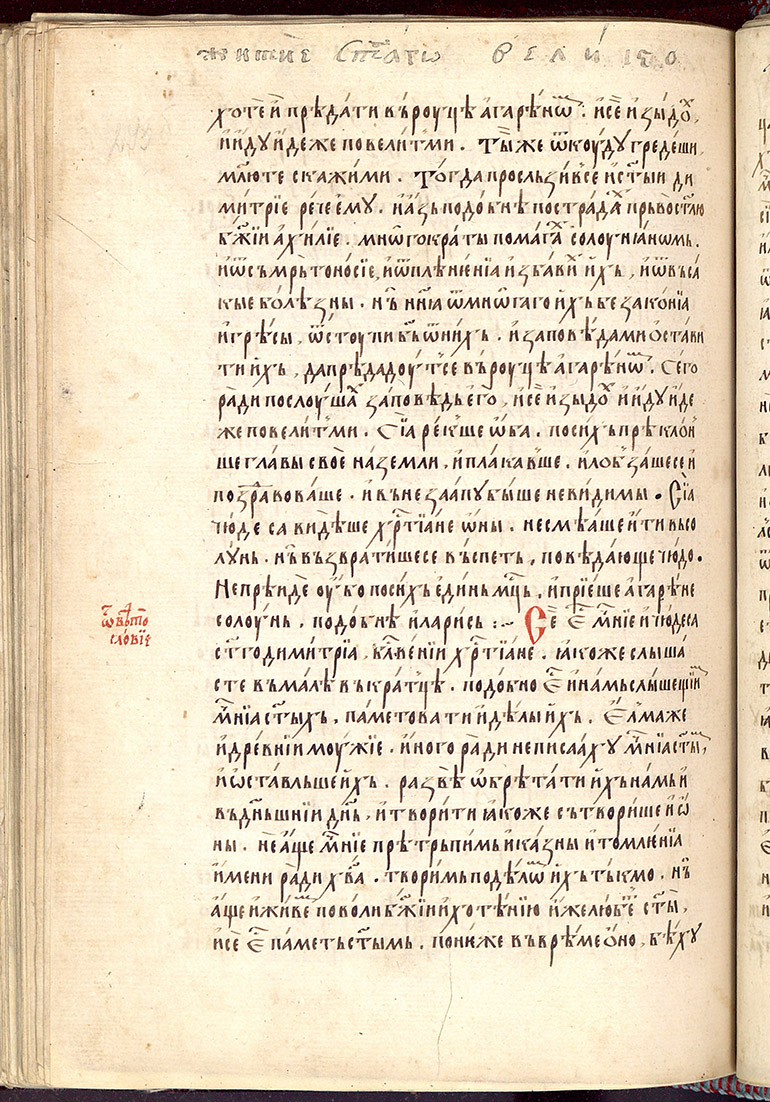 житиѐ свѧтаго вели
хоте́ й прѣдати въ роуцѣ агарѣнѡм. и се́ и҆зыдох,
и҆ и҆ду и҆деже повелит ми. Ты́ же ѿкоуду гредеши,
млю те скажи ми. Тогда прослъзи в се и҆ ст҃ыи ди
митрїе рече е҆му. и҆ а҆зь подобнѣ пострадах прьвост҃лю
бж҃їи ахилїе. мнѡгократы помагах солоунꙗномь.
и҆ ѿ съмрьтоносїе, и҆ ѿ плѣненїа и҆збавих и҆хь, и҆ ѿ въса
кые болѣзны. нь҆ нн҃ꙗ ѿ мнѡгаго и҆хь безаконїа
и҆ грѣсы, ѿступи бь҃ ѿ нихь. и҆ заповѣда ми ѡстави
ти и҆хь, да прѣдадоут се въ роуцѣ агарѣнѡм. Сего
ради послоушах заповѣдь его, и҆ се́ и҆зыдох и҆ и҆ду и҆де
же повелит ми. Сїа рекше ѡба. по сихь прѣклон
ше главы свое на земли, и҆ плакавше. и҆ лобзаше се и҆
поздравоваше. и҆ вънезаапу быше невидимы. Сїа
чюдеса видѣше хр҃тїане ѡны. не смѣаше и҆ти въ со
лоунь. нь҆ възвратише се въспеть, поведающе чюдо.
Не прѣиде оубо по сихь единь мц҃ь, и҆ прїеше агарѣне
солоунь, подобнѣ и҆ ларись :~ Се́ ест мч҃нїе и҆ чюдеса
ст҃го димитрїа, благословени хр҃тїане. ꙗкоже слыша
сте въмалѣ въкратцѣ. подобно ест и҆ намь слышещїим
мч҃нїа ст҃ыхь, паметовати и҆ дѣлы и҆хь. Елма же
и҆ древнїи моужїе. и҆ного ради не писааху мч҃нїа ст҃ым,
и҆ ѡставльше и҆хь. развѣ ѡбрѣтати и҆хь намь и҆
въ дн҃шнїи дн҃ь, и҆ творити ꙗкоже сътворише и҆ ѡ
ны. не а҆ще мч҃нїе прѣтрьпимь и҆ казны и҆ томленїа
и҆мени ради хв҃а. творимь по дѣлѡм и҆хь тькмо. нь҆
а҆ще и҆ живем по воли бж҃їи и҆ хотѣнїю и҆же любет ст҃ы,
и҆ се́ ест паметь ст҃ымь. понꙗже въ врѣме ѡно, бѣху